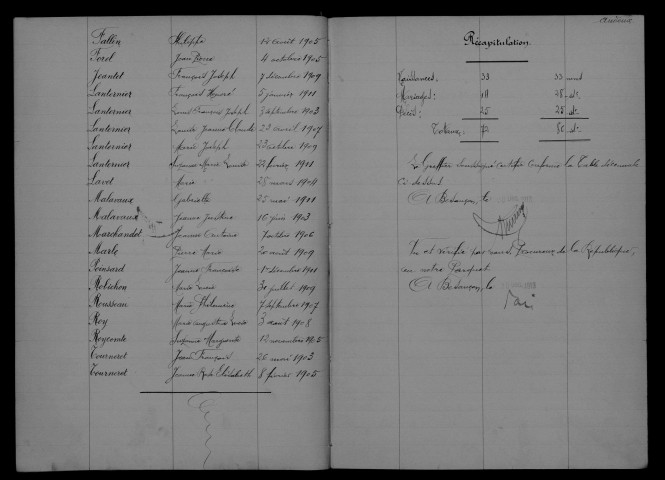 Fallon Philippe 14 août 1905
Forel Jean Pierre 4 octobre 1905
Jeantet François Joseph 7 décembre 1909
Lanternier François Honoré 5 janvier 1901
Lanternier Louis François Joseph 3 septembre 1903
Lanternier Jeanne Claude 23 avril 1907
Lanternier Marie Joseph octobre 1909
Lanternier Suzanne Marie 22 février 1901
Lavet Marie 25 mars 1904
Malavaux Gabrielle 25 mai 1901
Malavaux Jeanne Justine 16 juin 1903
Marchandot Jeanne 7 octobre 1906
Marle Pierre Marie 20 août 1909
Ponsard Jeanne 1er décembre 1901
Robichon Marie Louis 30 juillet 1909
Rousseau Marie Philomène 7 septembre 1907
Roy Marie Augustine 3 août 1908
Roycomte Suzanne Marguerite 12 novembre 1905
Tournerot Jean François 26 mai 1903
Tournerot Jeanne Rose Elisabeth 8 février 1905
Récapitulation.
Naissances: 33 33
Mariages: 14
Décès: 25 25 dt.
Totaux: 72 dt.
Le Greffier soussigné certifie conforme la Table décennale
ci dessus.
A Besançon, le
Vu et vérifié par nous Procureur de la République,
en notre Parquet.
A Besançon, le